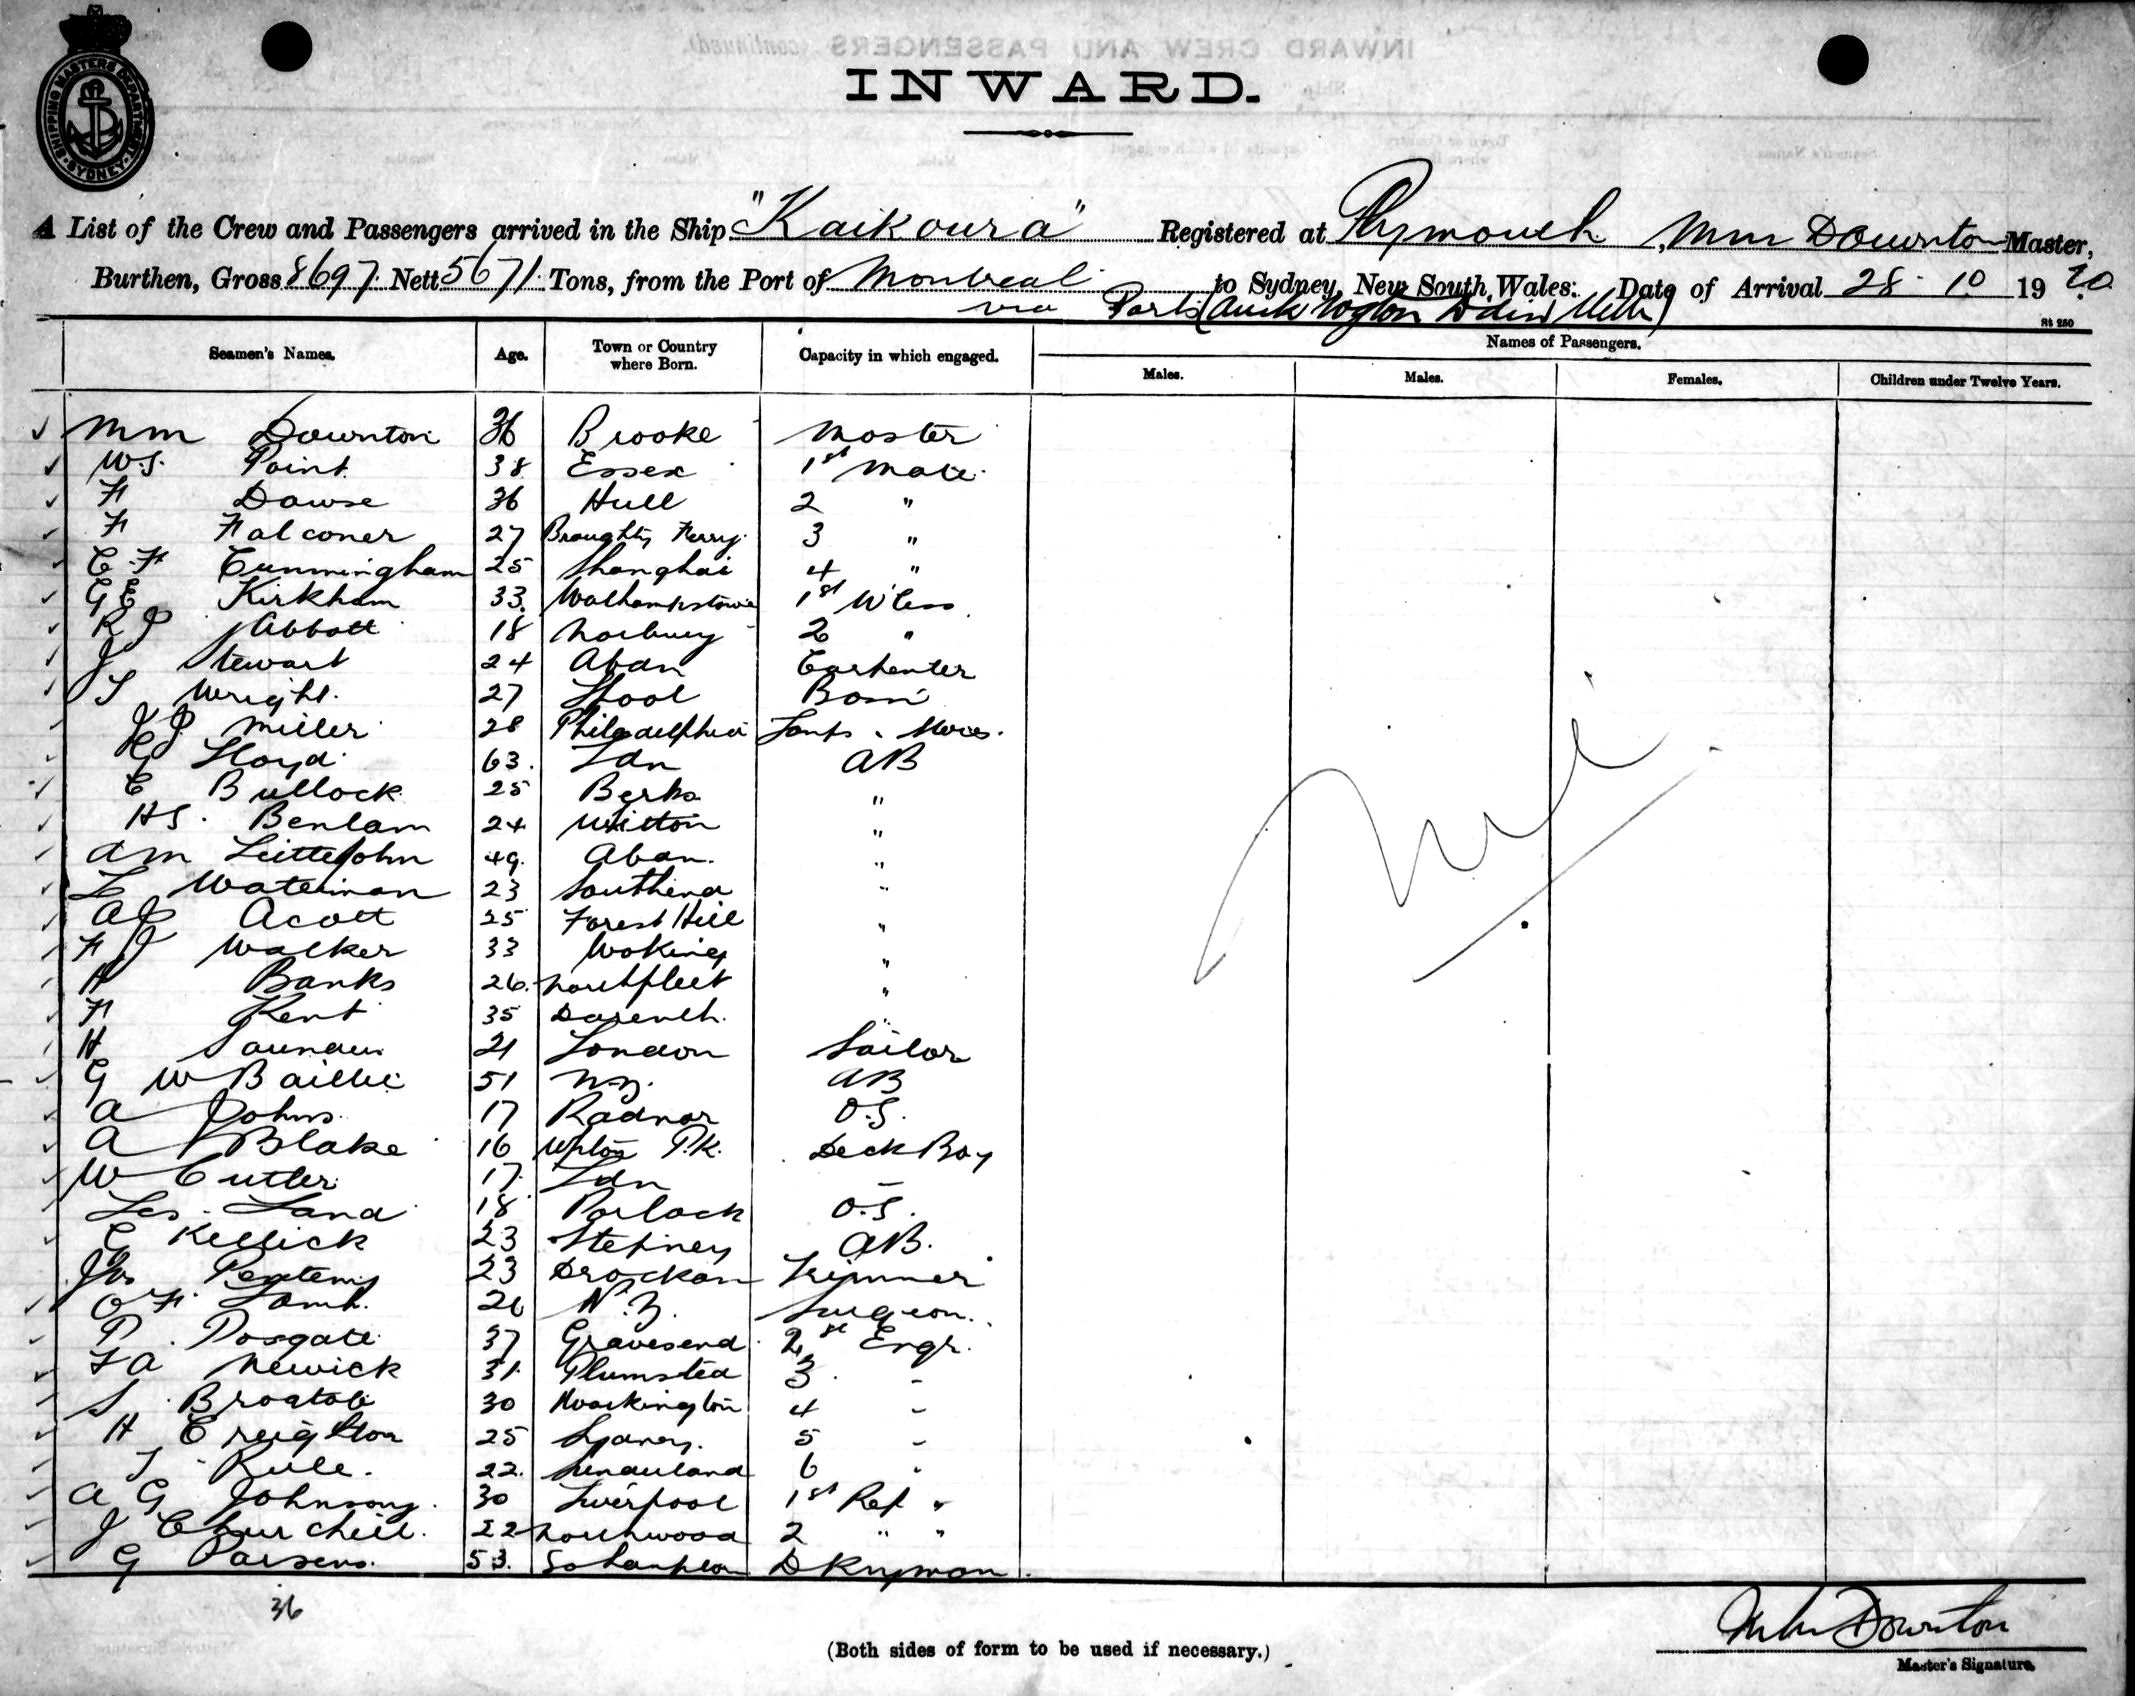 SHIPPING MASTERS DEPARTMENT SYDNEY
INWARD.
A List of the Crew and Passengers arrived in the Ship "Kaikoura" Registered at Plymouth, Mm Downton Master,
Burthen, Gross 8697 Nett 5671 Tons, from the Port of Montreal to Sydney, New South Wales: Date of Arrival 28 10 1920
via Ports (Auck Wgton Ddin Melb)
St 250
Seamen's Names. Age. Town or Country where Born. Capacity in which engaged. Names of Passengers.
Males. Males. Females. Children under Twelve Years.
Mm Downton 36 Brooke Master
W.S. Point 38 Essex 1st Mate
F Dowse 36 Hull 2 "
F Falconer 27 Broughty Ferry 3 "
C F Cunningham 25 Shanghai 4 "
G E Kirkham 33 Walthampstowe 1st W'less
R J Abbott 18 Norbury 2 "
J Stewart 24 Abdn Carpenter
S Wright 27 Lpool Bosn
J J Miller 28 Philadelphia Lamps
Lloyd 63 Ldn AB
C Bullock 25 Berks "
HS. Benlam 24 Witton "
AM LittleJohn 49 Abdn. "
L Waterman 23 Southend "
AJ Acott 25 Forest Hill "
F J Walker 33 Woking "
H Banks 26 Northfleet "
F Kent 35 Darenth "
H Saunders 21 London Sailor
G W Baillie 51 N.Z. AB
A Johns 17 Radnor O.S.
A Blake 16 Upton P.K. Deck Boy
W Cutler 17 Ldn "
Les Land 18 Porlock O.S.
G Kellick 23 Stepney AB.
Jas 23 Trimmer
O F Lamb. 26 N.Z. Surgeon
P. Posgate 37 Gravesend 2 Engr.
F A Newick 31 Plumstead 3 "
S 30 Workington 4 "
H Creighton 25 Sydney. 5 "
T Rule. 22 Sunderland 6 "
A G Johnson 30 Liverpool 1st Ref "
J Churchill. 22 Northwood 2 " "
G Parsons. 53. So'hampton Dkyman.
Nil
36
Mm Downton
(Both sides of form to be used if necessary.)
Master's Signature.